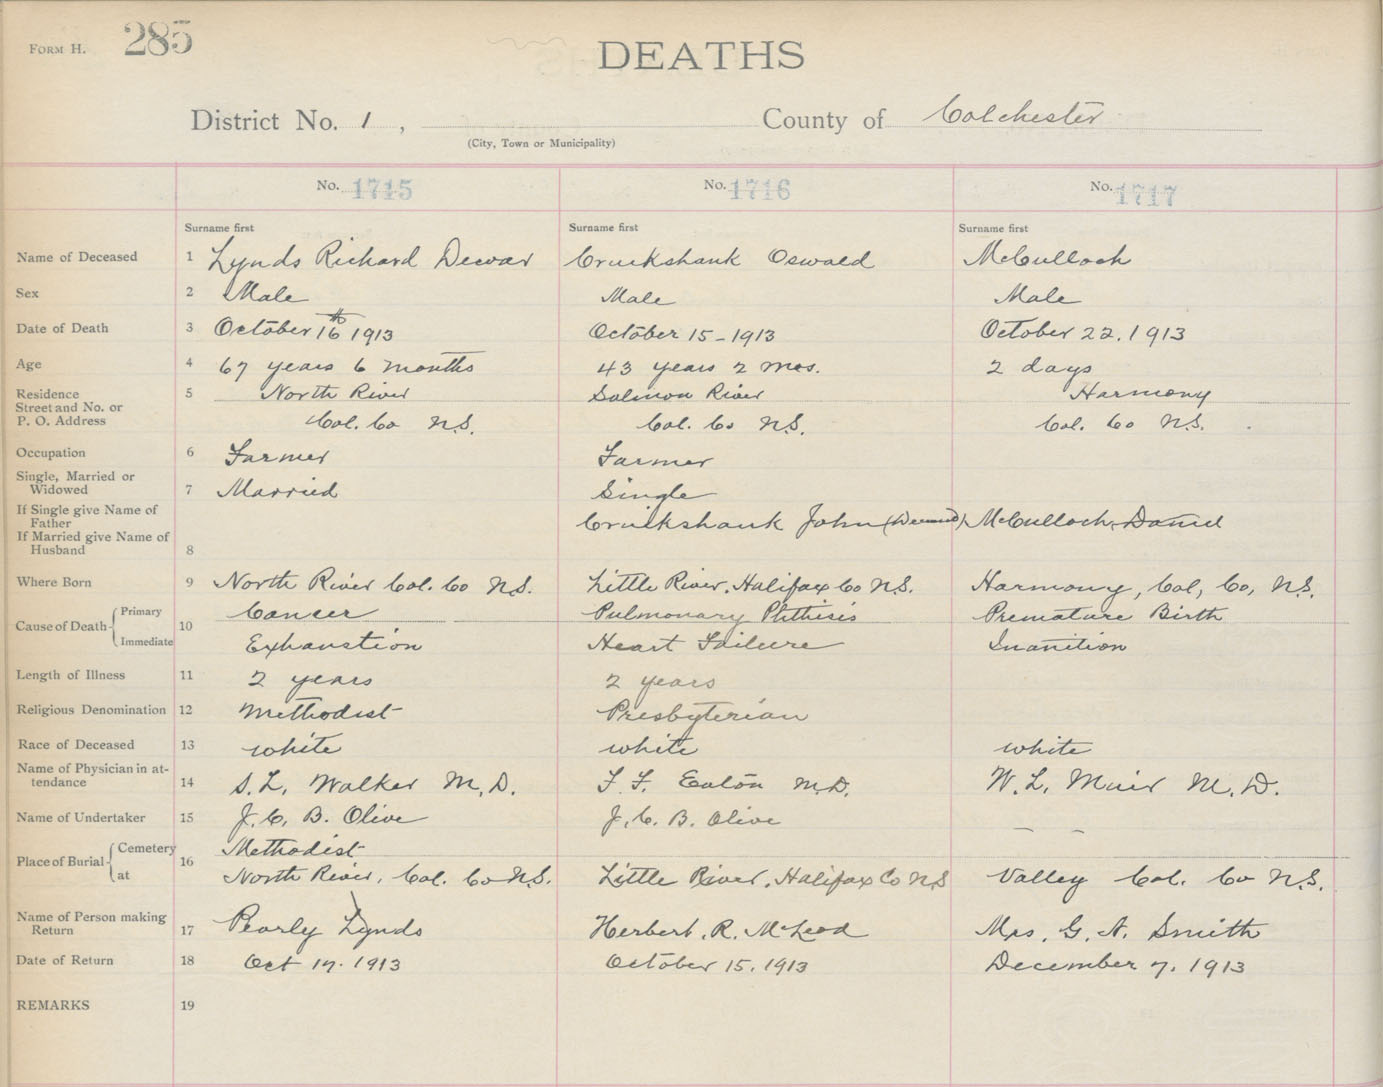 FORM H. 285
DEATHS
District No. 1, County of Colchester
(City, Town or Municipality)
No. 1715 No. 1716 No. 1717
Surname first Surname first Surname first
Name of Deceased 1 Lynds Richard Dewar Cruikshank Oswald McCulloch
Sex 2 Male Male Male
Date of Death 3 October 16th 1913 October 15-1913 October 22. 1913
Age 4 67 years 6 months 43 years 2 mos. 2 days
Residence 5 North River Salmon River Harmony
Street and No. or
P. O. Address Col. Co N.S. Col. Co N.S. Col. Co N.S.
Occupation 6 Farmer Farmer
Single, Married or
Widowed 7 Married Single
If Single give Name of
Father Cruikshank John (Deceased) McCulloch, David
If Married give Name of
Husband 8
Where Born 9 North River Col. Co N.S. Little River, Halifax Co N.S. Harmony, Col, Co, N.S.
Cause of Death Primary 10 Cancer Pulmonary Phthisis Premature Birth
Immediate Exhaustion Heart Failure Inanition
Length of Illness 11 2 years 2 years
Religious Denomination 12 Methodist Presbyterian
Race of Deceased 13 white white white
Name of Physician in at-
tendance 14 S. L. Walker M. D. F. F. Eaton M.D. W. L. Muir M. D.
Name of Undertaker 15 J. C. B. Olive J. C. B. Olive
Place of Burial Cemetery 16 Methodist
at North River, Col. Co N.S. Little River, Halifax Co N.S Valley Col. Co N.S.
Name of Person making
Return 17 Pearly Lynds Herbert. R. McLeod Mrs. G. A. Smith
Date of Return 18 Oct 17. 1913 October 15. 1913 December 7. 1913
REMARKS 19